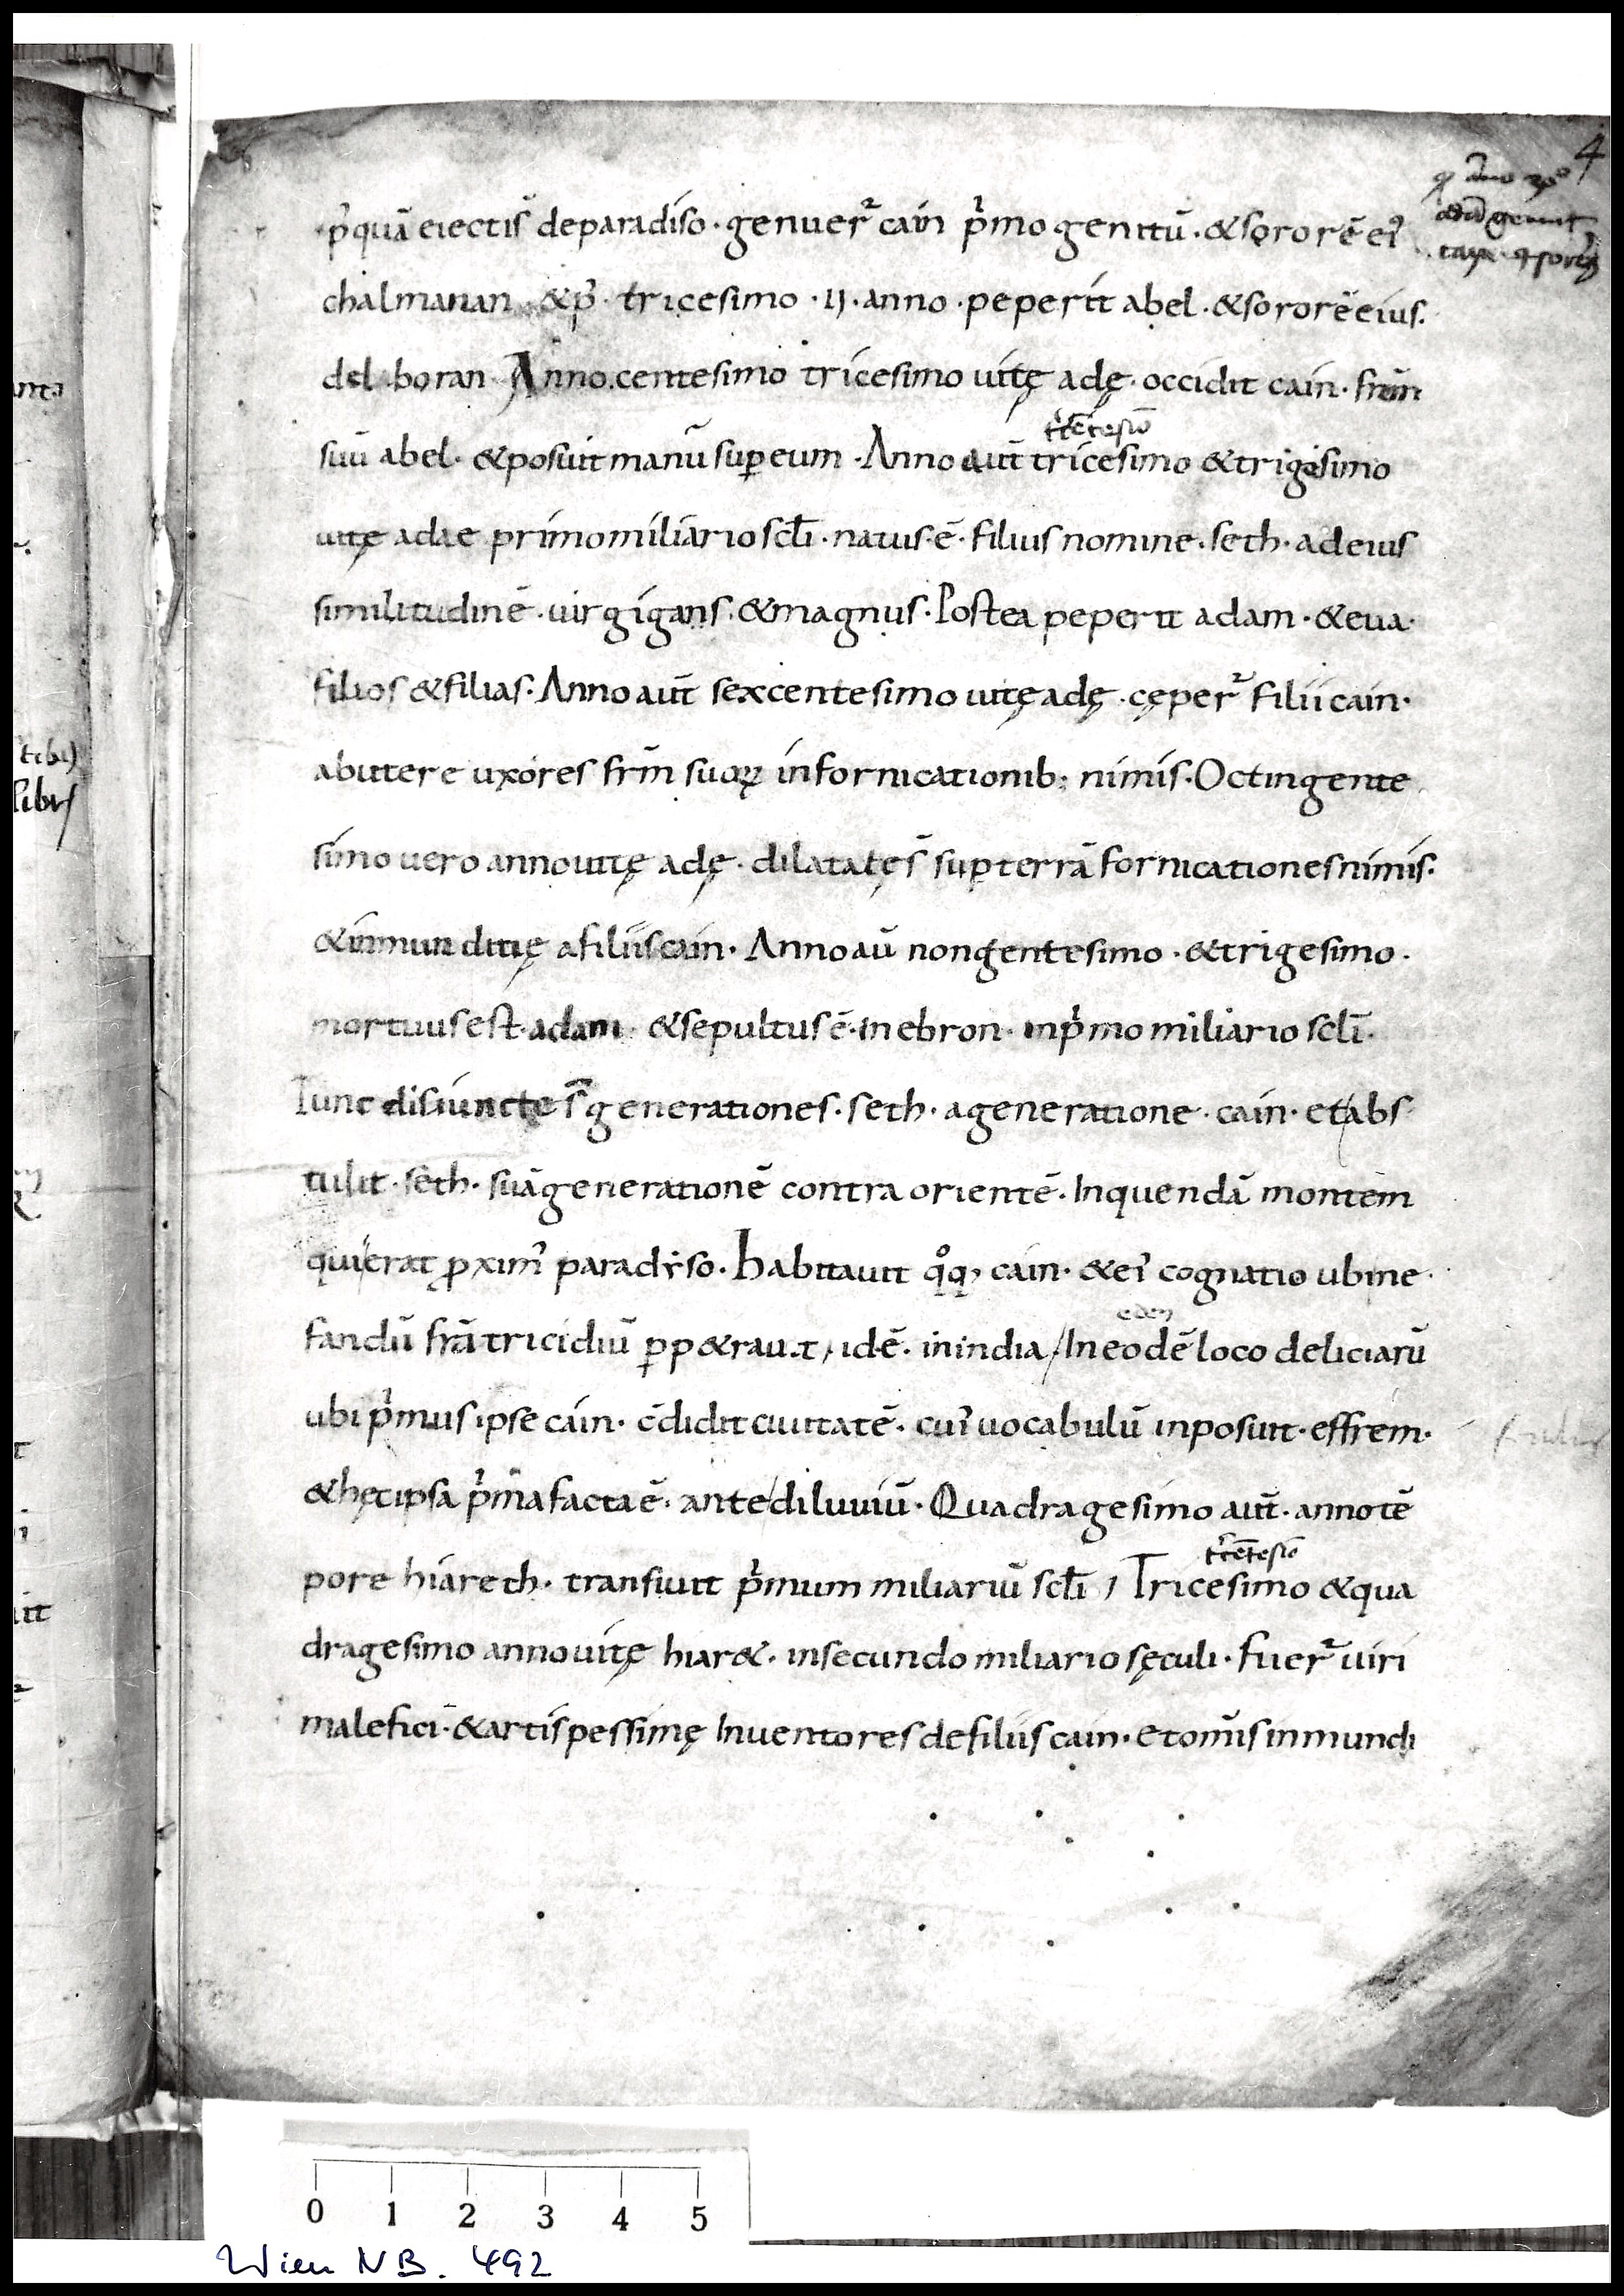 4
p̾quā eiectis̄ deparadiso · genuer̄ cain p̾mo genitū · &sororē ei᾿
adā genuit
chalmanan · &p᾿ · tricesimo · II · anno · peperit abel · &sororē eius.
delboran · Anno centesimo tricesimo uitę adę · occidit cain · frēm
suū abel · &posuit manū sup̱ eum · Anno aut̄ tricesimo &trigesimo
uitę adae primo miliario scl̄i · natus · ē · filius nomine · seth · ad eius
similitudinē · uir gigans · &magnus · Postea peperit adam · &eua ·
filios &filias · Anno aut̄ sexcentesimo uitę adę · cęper̄ filii cain ·
abutere uxores frm̄ suoꝝ in fornicationib; nimis · Octingente
simo uero anno uitę adę · dilatatę s̄ sup̱ terrā fornicationes nimis ·
&inmunditię a filiis cain · Anno aū nongentesimo · &trigesimo ·
mortuus est · adam · &sepultus ē · In ebron · in p̾mo miliario scl̄i ·
Tunc disiunctę s̄ generationes · seth · a generatione · cain · et abs
tulit · seth · suā generationē contra orientē · In quendā montem
qui erat ꝓxim᾿ paradyso · habitauit q°q, cain · &ei᾿ cognatio ubi ne
eden
fandū frātricidiū p̱p&rauit, id · ē · in india / In eodē loco deliciarū
ubi p̾mus ipse cain · c̄didit ciuitatē · cui᾿ uocabulū inposuit · effrem ·
&hęc ipsa p̾ma facta ē · ante diluuiū · Quadragesimo aut̄ · anno tē
pore hiareth · transiuit p̾mum miliariū scl̄i / Tricesimo &qua
dragesimo anno uitę hiar& · in secundo miliario sęculi · fuer̄ uiri
malefici · &artis pessimę Inuentores de filiis cain · et om̄is inmundi
0 1 2 3 4 5
Wien NB. 492